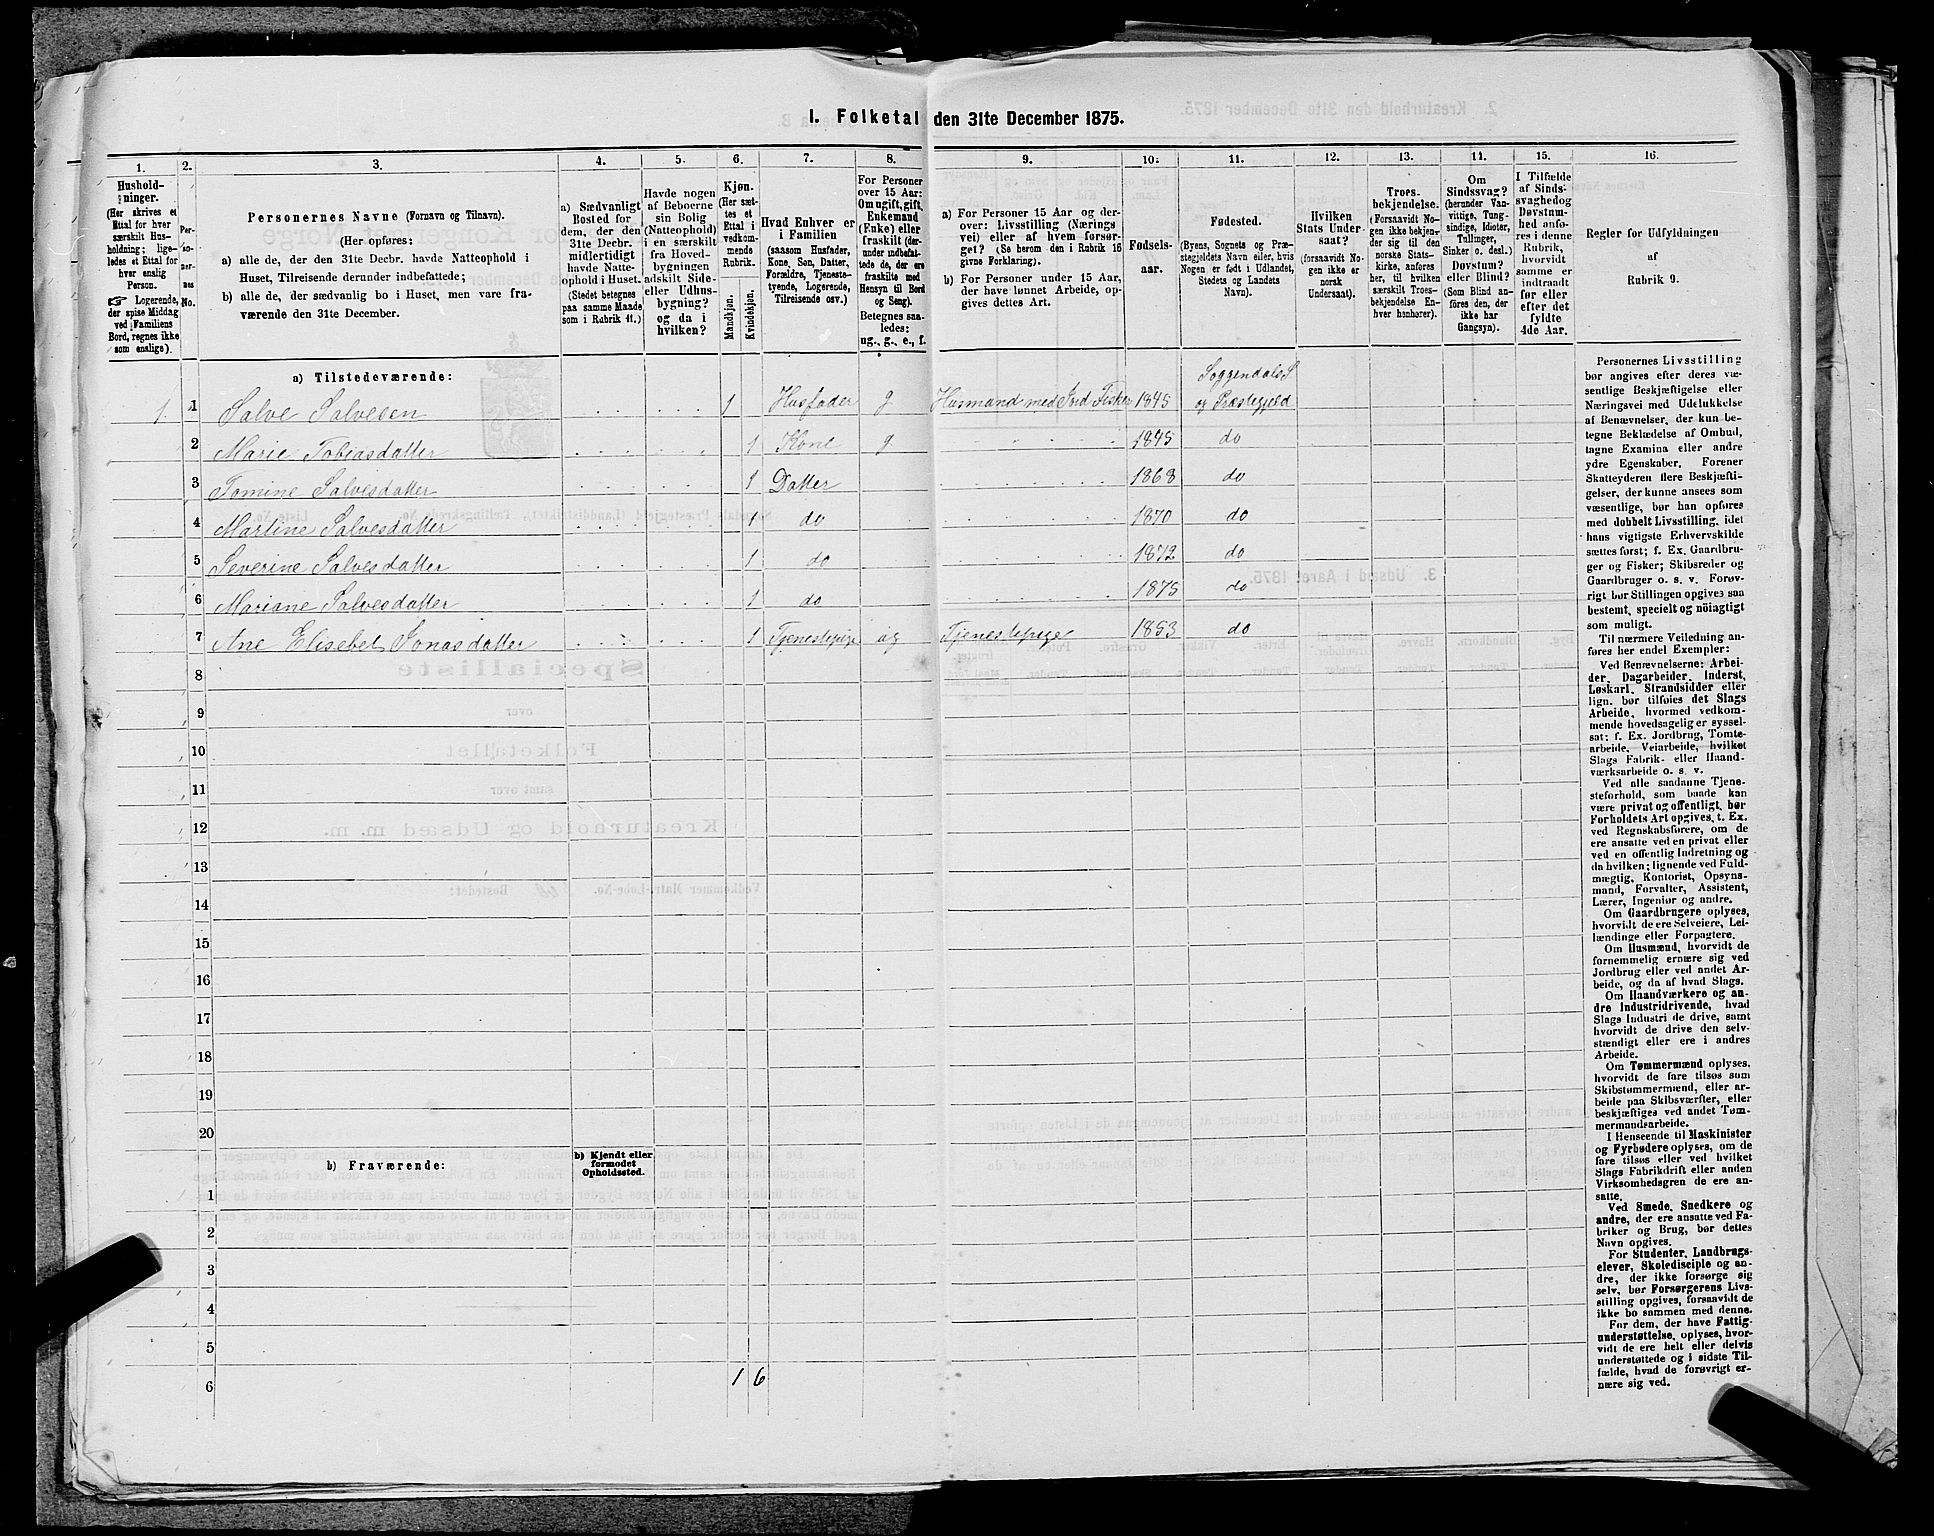 I. Folketal den 31te December 1875.
1. 2. 3. 4. 5. 6. 7. 8. 9. 10. 11. 12. 13. 14. 15. 16.
Hushold-
ninger.
(Her skrives et
Ettal for hver
særskilt Hus-
holdning; lige-
ledes et Ettal for
hver enslig
Person.
☞ Logerende,
der spise Middag
ved Familiens
Bord, regnes ikke
som enslige).
Per-
so-
ner-
nes
No.
Personernes Navne (Fornavn og Tilnavn).
(Her opføres:
a) alle de, der den 31te Decbr. havde Natteophold i
Huset, Tilreisende derunder indbefattede;
b) alle de, der sædvanlig bo i Huset, men vare fra-
værende den 31te December.
a) Sædvanligt
Bosted for
dem, der den
31te Decbr.
midlertidigt
havde Natte-
ophold i Huset.
(Stedet betegnes
paa samme Maade
som i Rubrik 11.)
Havde nogen
af Beboerne
sin Bolig
(Natteophold)
i en særskilt
fra Hoved-
bygningen
adskilt Side-
eller Udhus-
bygning?
og da i
hvilken?
Kjøn.
(Her sæt-
tes et
Ettal i
vedkom-
mende
Rubrik.
Mandkjøn.
Kvindekjøn.
Hvad Enhver er
i Familien
(saasom Husfader,
Kone, Søn, Datter,
Forældre, Tjeneste-
tyende, Logerende,
Tilreisende osv.)
For Personer
over 15 Aar:
Om ugift, gift,
Enkemand
(Enke) eller
fraskilt (der-
under indbefat-
tede de, der ere
fraskilte med
Hensyn til Bord
og Seng).
Betegnes saa-
ledes:
ug., g., e., f.
a) For Personer 15 Aar og der-
over: Livsstilling (Nærings
vei) eller af hvem forsør-
get? (Se herom den i Rubrik 16
givne Forklaring).
b) For Personer under 15 Aar,
der have lønnet Arbeide, op-
gives dettes Art.
Fødsels-
aar.
Fødested.
(Byens, Sognets og Præ-
stegjeldets Navn eller, hvis
Nogen er født i Udlandet,
Stedets og Landets
Navn).
Hvilken
Stats Under-
saat?
(forsaavidt No-
gen ikke er
norsk
Undersaat).
Troes-
bekjendelse.
(Forsaavidt No-
gen ikke bekjen-
der sig til den
norske Stats-
kirke, anføres
her, til hvilken
særskilt Troes-
bekjendelse En-
hver henhører).
Om
Sindssvag?
(herunder Van-
vittige, Tung-
sindige, Idioter,
Tullinger,
Sinker o. desl.)
Døvstum?
eller Blind?
(Som Blind an-
føres den, der
ikke har
Gangsyn).
I Tilfælde
af Sinds-
svaghed og
Døvstum-
hed anfø-
res i denne
Rubrik,
hvorvidt
samme er
indtraadt
før eller
efter det
fyldte
4de Aar.
Regler for Udfyldningen
af
Rubrik 9.
a) Tilstedeværende:
Soggendals S
1. 1 Salve Salvesen 1 Husfader g Husmand med Jord Fisker 1845 og Præstegjeld
2 Marie Tobiasdatter 1 Kone g 1845 do
3 Tomine Salvesdatter 1 Datter 1868 do
4 Martine Salvesdatter 1 do 1870 do
5 Severine Salvesdatter 1 do 1872 do
6 Mariane Salvesdatter 1 do 1875 do
7 Ane Elisebet Jonasdatter 1 Tjenestepige ug Tjenestepige 1853 do
8
9
10
11
12
13
14
15
16
17
18
19
20
b) Fraværende:
b) Kjendt eller
formodet
Opholdssted.
1
2
3
4
5
6 1 6
Personernes Livsstilling
bør angives efter deres væ-
sentlige Beskjæftigelse eller
Næringsvei med Udelukkelse
af Benævnelser, der kun be-
tegne Beklædelse af Ombud,
tagne Examina eller andre
ydre Egenskaber. Forener
Skatteyderen flere Beskjæfti-
gelser, der kunne ansees som
væsentlige, bør han opføres
med dobbelt Livsstilling, idet
hans vigtigste Erhvervskilde
sættes først; f. Ex. Gaardbru-
ger og Fisker; Skibsreder og
Gaardbruger o. s. v. Forøv-
rigt bør Stillingen opgives saa
bestemt, specielt og nöiagtigt
som muligt.
Til nærmere Veiledning an-
føres her endel Exempler:
Ved Benævnelserne: Arbei-
der, Dagarbeider, Inderst,
Løskarl, Strandsidder eller
lign. bør tilføies det Slags
Arbeide, hvormed vedkom-
mende hovedsagelig er syssel-
sat; f. Ex. Jordbrug, Tomte-
arbeide, Veiarbeide, hvilket
Slags Fabrik- eller Haand-
værksarbeide o. s. v.
Ved alle saadanne Tjene-
steforhold, som baade kan
være privat og offentligt, bør
Forholdets Art opgives, t. Ex.
ved Regnskabsførere, om de
ere ansatte ved en privat eller
ved en offentlig Indretning og
da hvilken; lignende ved Fuld-
mægtig, Kontorist, Opsyns-
mand, Forvalter, Assistent,
Lærer, Ingeniør og andre.
Om Gaardbrugere oplyses,
hvorvidt de ere Selveiere, Lei-
lændinge eller Forpagtere.
Om Husmænd, hvorvidt de
fornemmelig ernære sig ved
Jordbrug eller ved andet Ar-
beide, og da af hvad Slags.
Om Haandværkere og an-
dre Industridrivende, hvad
Slags Industri de drive, samt
hvorvidt de drive den selv-
stændigt eller ere i andres
Arbeide.
Om Tømmermænd oplyses,
hvorvidt de fare tilsøs som
Skibstømmermænd, eller ar-
beide paa Skibsværfter, eller
beskjæftiges ved andet Tøm-
mermandsarbeide.
I Henseende til Maskinister
og Fyrbødere oplyses, om de
fare tilsøs eller ved hvilket
Slags Fabrikdrift eller anden
Virksomhedsgren de ere an-
satte.
Ved Smede, Snedkere og
andre, der ere ansatte ved Fa-
briker og Brug, bør dettes
Navn opgives.
For Studenter, Landbrugs-
elever, Skoledisciple og an-
dre, der ikke forsørge sig
selv, bør Forsørgerens Livs-
stilling opgives, forsaavidt de
ikke bo sammen med denne.
For dem, der have Fattig-
understøttelse, oplyses, hvor-
vidt de ere helt eller delvis
understøttede og i sidste Til-
fælde, hvad de forøvrigt er-
nære sig ved.